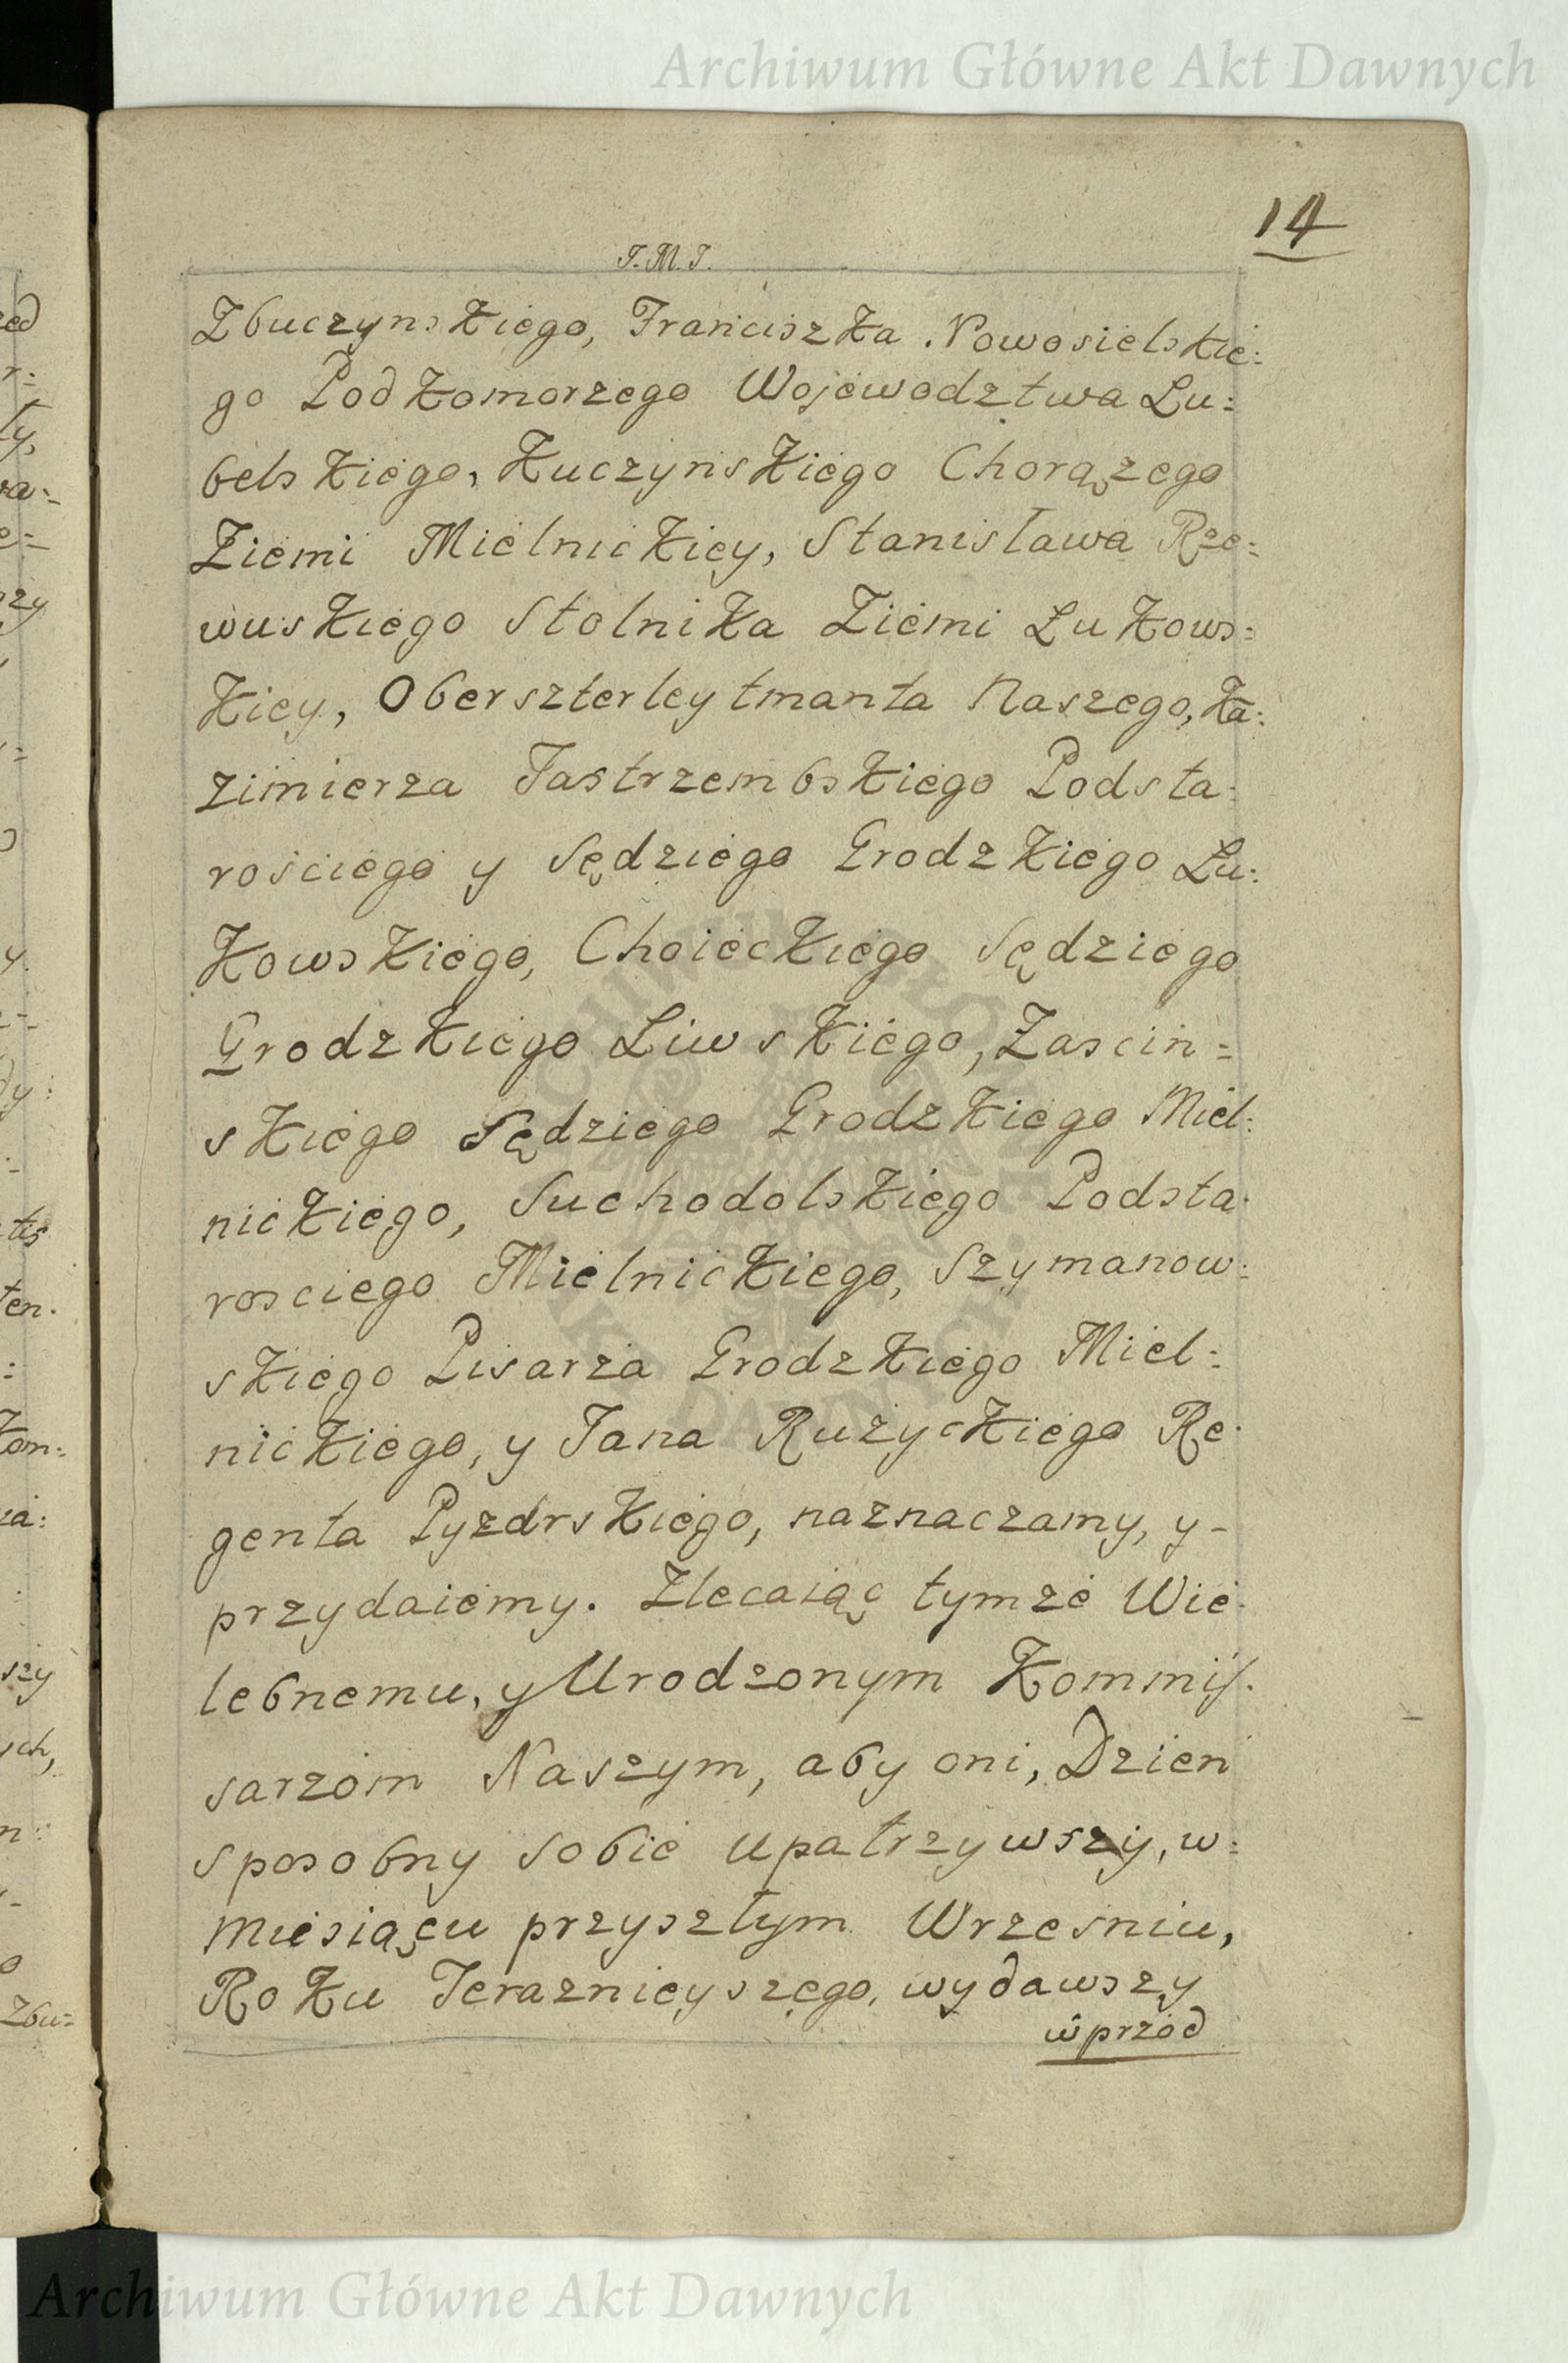 Archiwum Główne Akt Dawnych
14
J.M.J.
Zbuczynskiego, Franciszka Nowosielskie:
go Podkomorzego Wojewodztwa Lu:
belskiego, Kuczynskiego Chorązego
Ziemi Mielnickiey, Stanisława Rze:
wuskiego Stolnika Ziemi Łukows:
kiey, Oberszterleytmanta Naszego, Ka:
zimierza Jastrzembskiego Podsta:
rosciego y Sędziego Grodzkiego Łu:
kowskiego, Choieckiego Sędziego
Grodzkiego Liwskiego, Zascin=
skiego Sędziego Grodzkiego Miel:
nickiego, Suchodolskiego Podsta:
rosciego Mielnickiego, Szymanow:
skiego Pisarza Grodzkiego Miel:
nickiego, y Jana Rużyckiego Re:
genta Pyzdrskiego, naznaczamy, y-
przydaiemy. Zlecaiąc tymze Wie:
lebnemu, y Urodzonym Kommis:
sarzom Naszym, aby oni, Dzien
sposobny sobie upatrzywszy, w:
miesiącu przyszłym Wrzesniu,
Roku Teraznieyszego, wydawszy
wprzod
Archiwum Główne Akt Dawnych